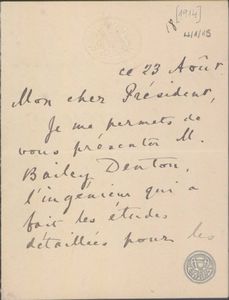 [1914]
ce 23 Août.
Mon cher Président,
Je me permets de
vous présenter M.
Bailey Denton,
l'ingénieur qui a
fait les études
détaillées pour les